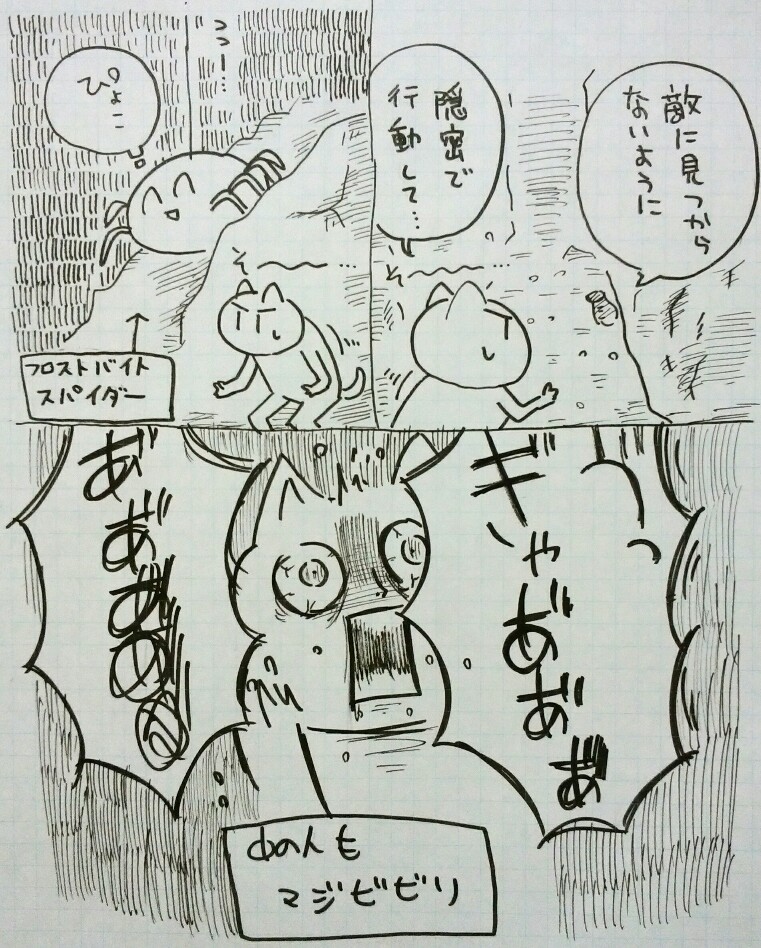 敵に見つから
ないように
隠密で
行動して…
そ～～…
つつー…
ぴょこ
そ～～…
フロストバイト
スパイダー
ぎゃあ゛あ゛あ゛
あ゛あ゛あ゛あ゛あ゛
中の人も
マジビビリ